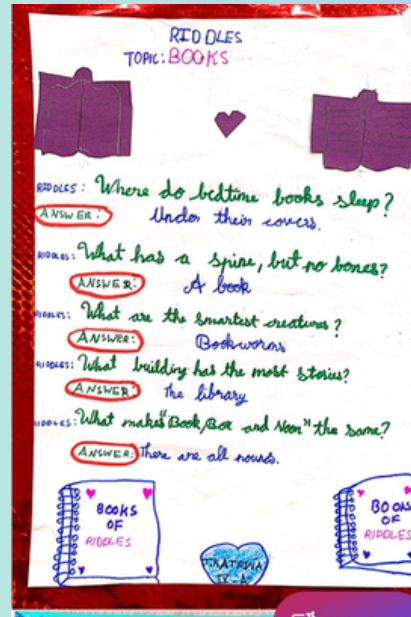 RIDDLES
TOPIC: BOOKS
RIDDLES: Where do bedtime books sleep?
ANSWER: Under their covers.
RIDDLES: What has a spine, but no bones?
ANSWER: A book
RIDDLES: What are the smartest creatures?
ANSWER: Bookworms
RIDDLES: What building has the most stories?
ANSWER: The library
RIDDLES: What makes "Book, Box and Noon" the same?
ANSWER: There are all nouns.
BOOKS
OF
RIDDLES
BOOKS
OF
RIDDLES
IV-A